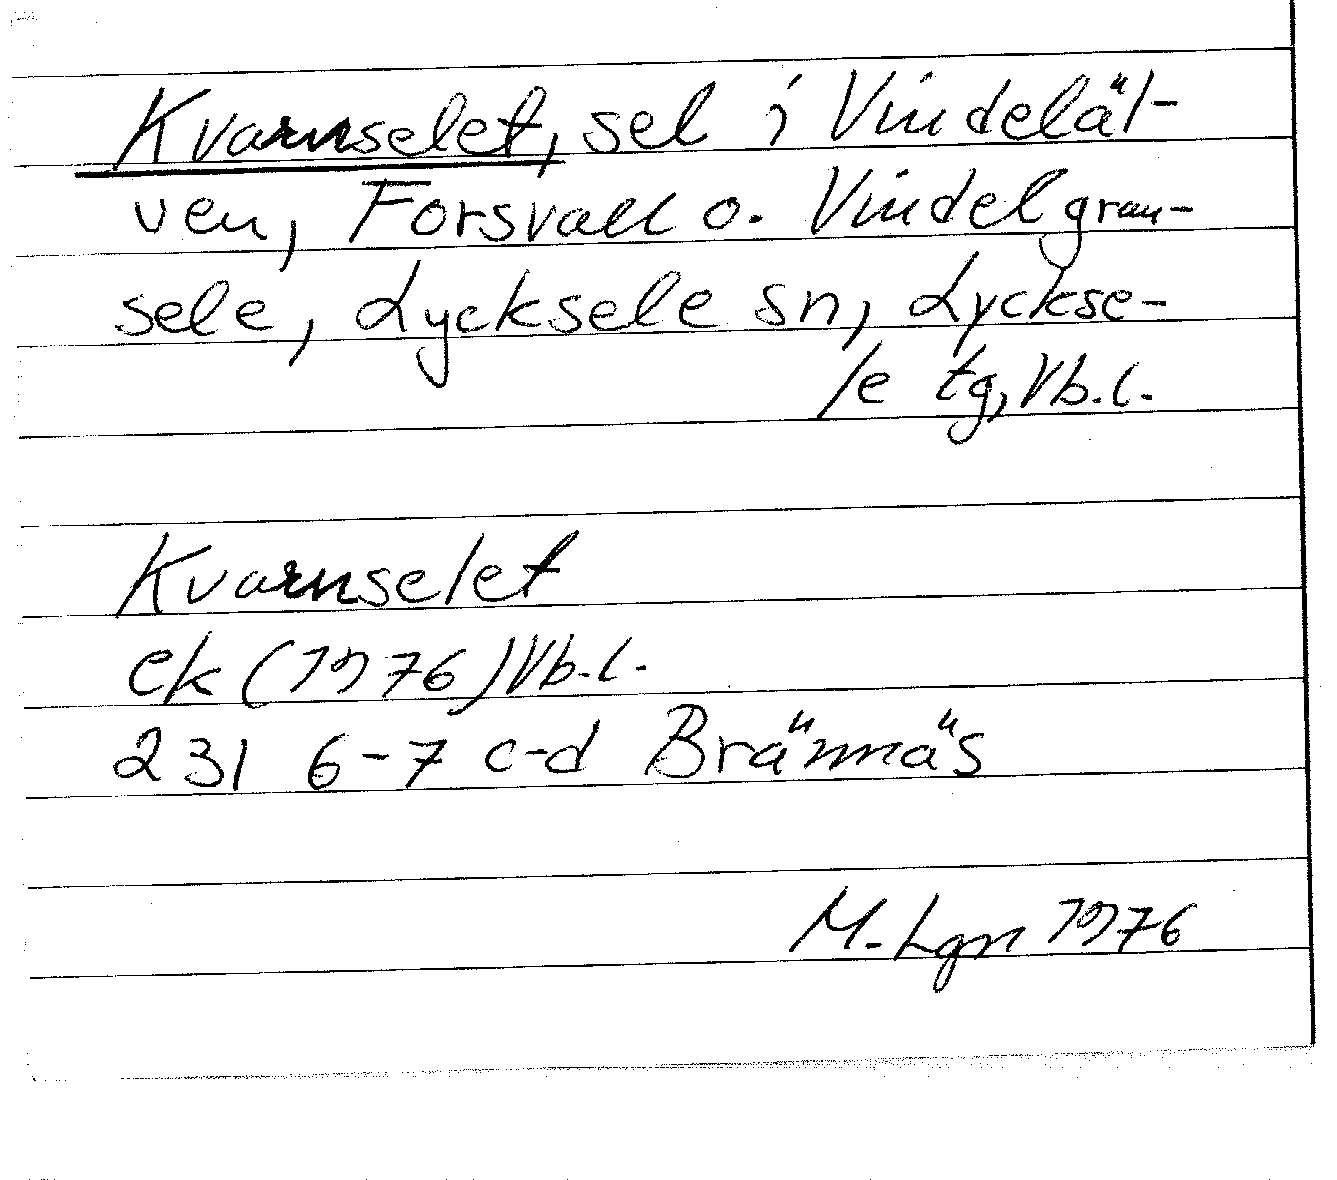 Kvarnselet, sel i Vindeläl-
ven, Forsvall o. Vindelgran-
sele, Lycksele sn, Lyckse-
le tg, Vb.l.
Kvarnselet
ek (1976) Vb.l.
231 6-7 c-d Brännäs
M. Lgn 1976